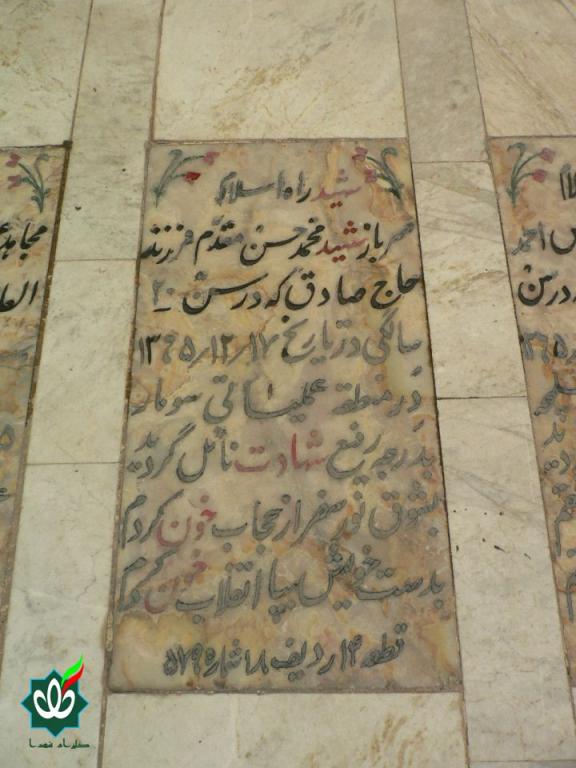 شهید راه اسلام
سرباز شهید محمد حسن مقدّم فرزند
حاج صادق که در سن ۲۰
سالگی در تاریخ ۱۳۶۵/۱۲/۱۷
در منطقه عملیاتی سومار
بدرجه رفیع شهادت نائل گردید
بشوق نور سفر از حجاب خون کردم
بدست خویش بپا انقلاب خون کردم
قطعه ۱۴ ردیف ۱۸ شماره ۵۷۹
مجاهد
العا
احمد
در سن
گلزار شهدا